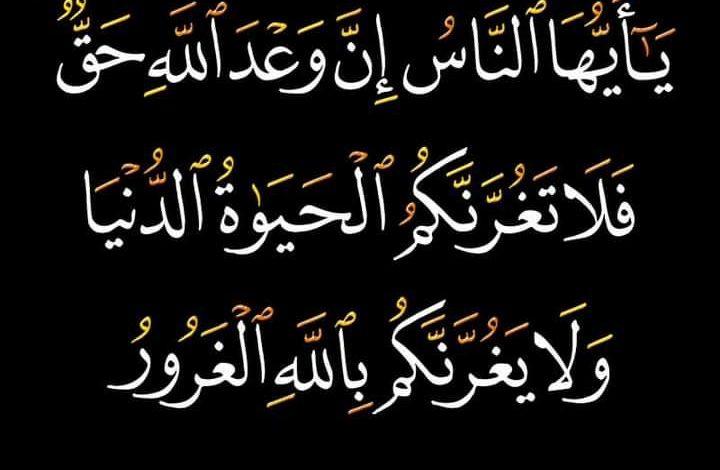 يَـٰٓأَيُّهَا ٱلنَّاسُ إِنَّ وَعْدَ ٱللَّهِ حَقٌّ
فَلَا تَغُرَّنَّكُمُ ٱلْحَيَوٰةُ ٱلدُّنْيَا
وَلَا يَغُرَّنَّكُم بِٱللَّهِ ٱلْغَرُورُ